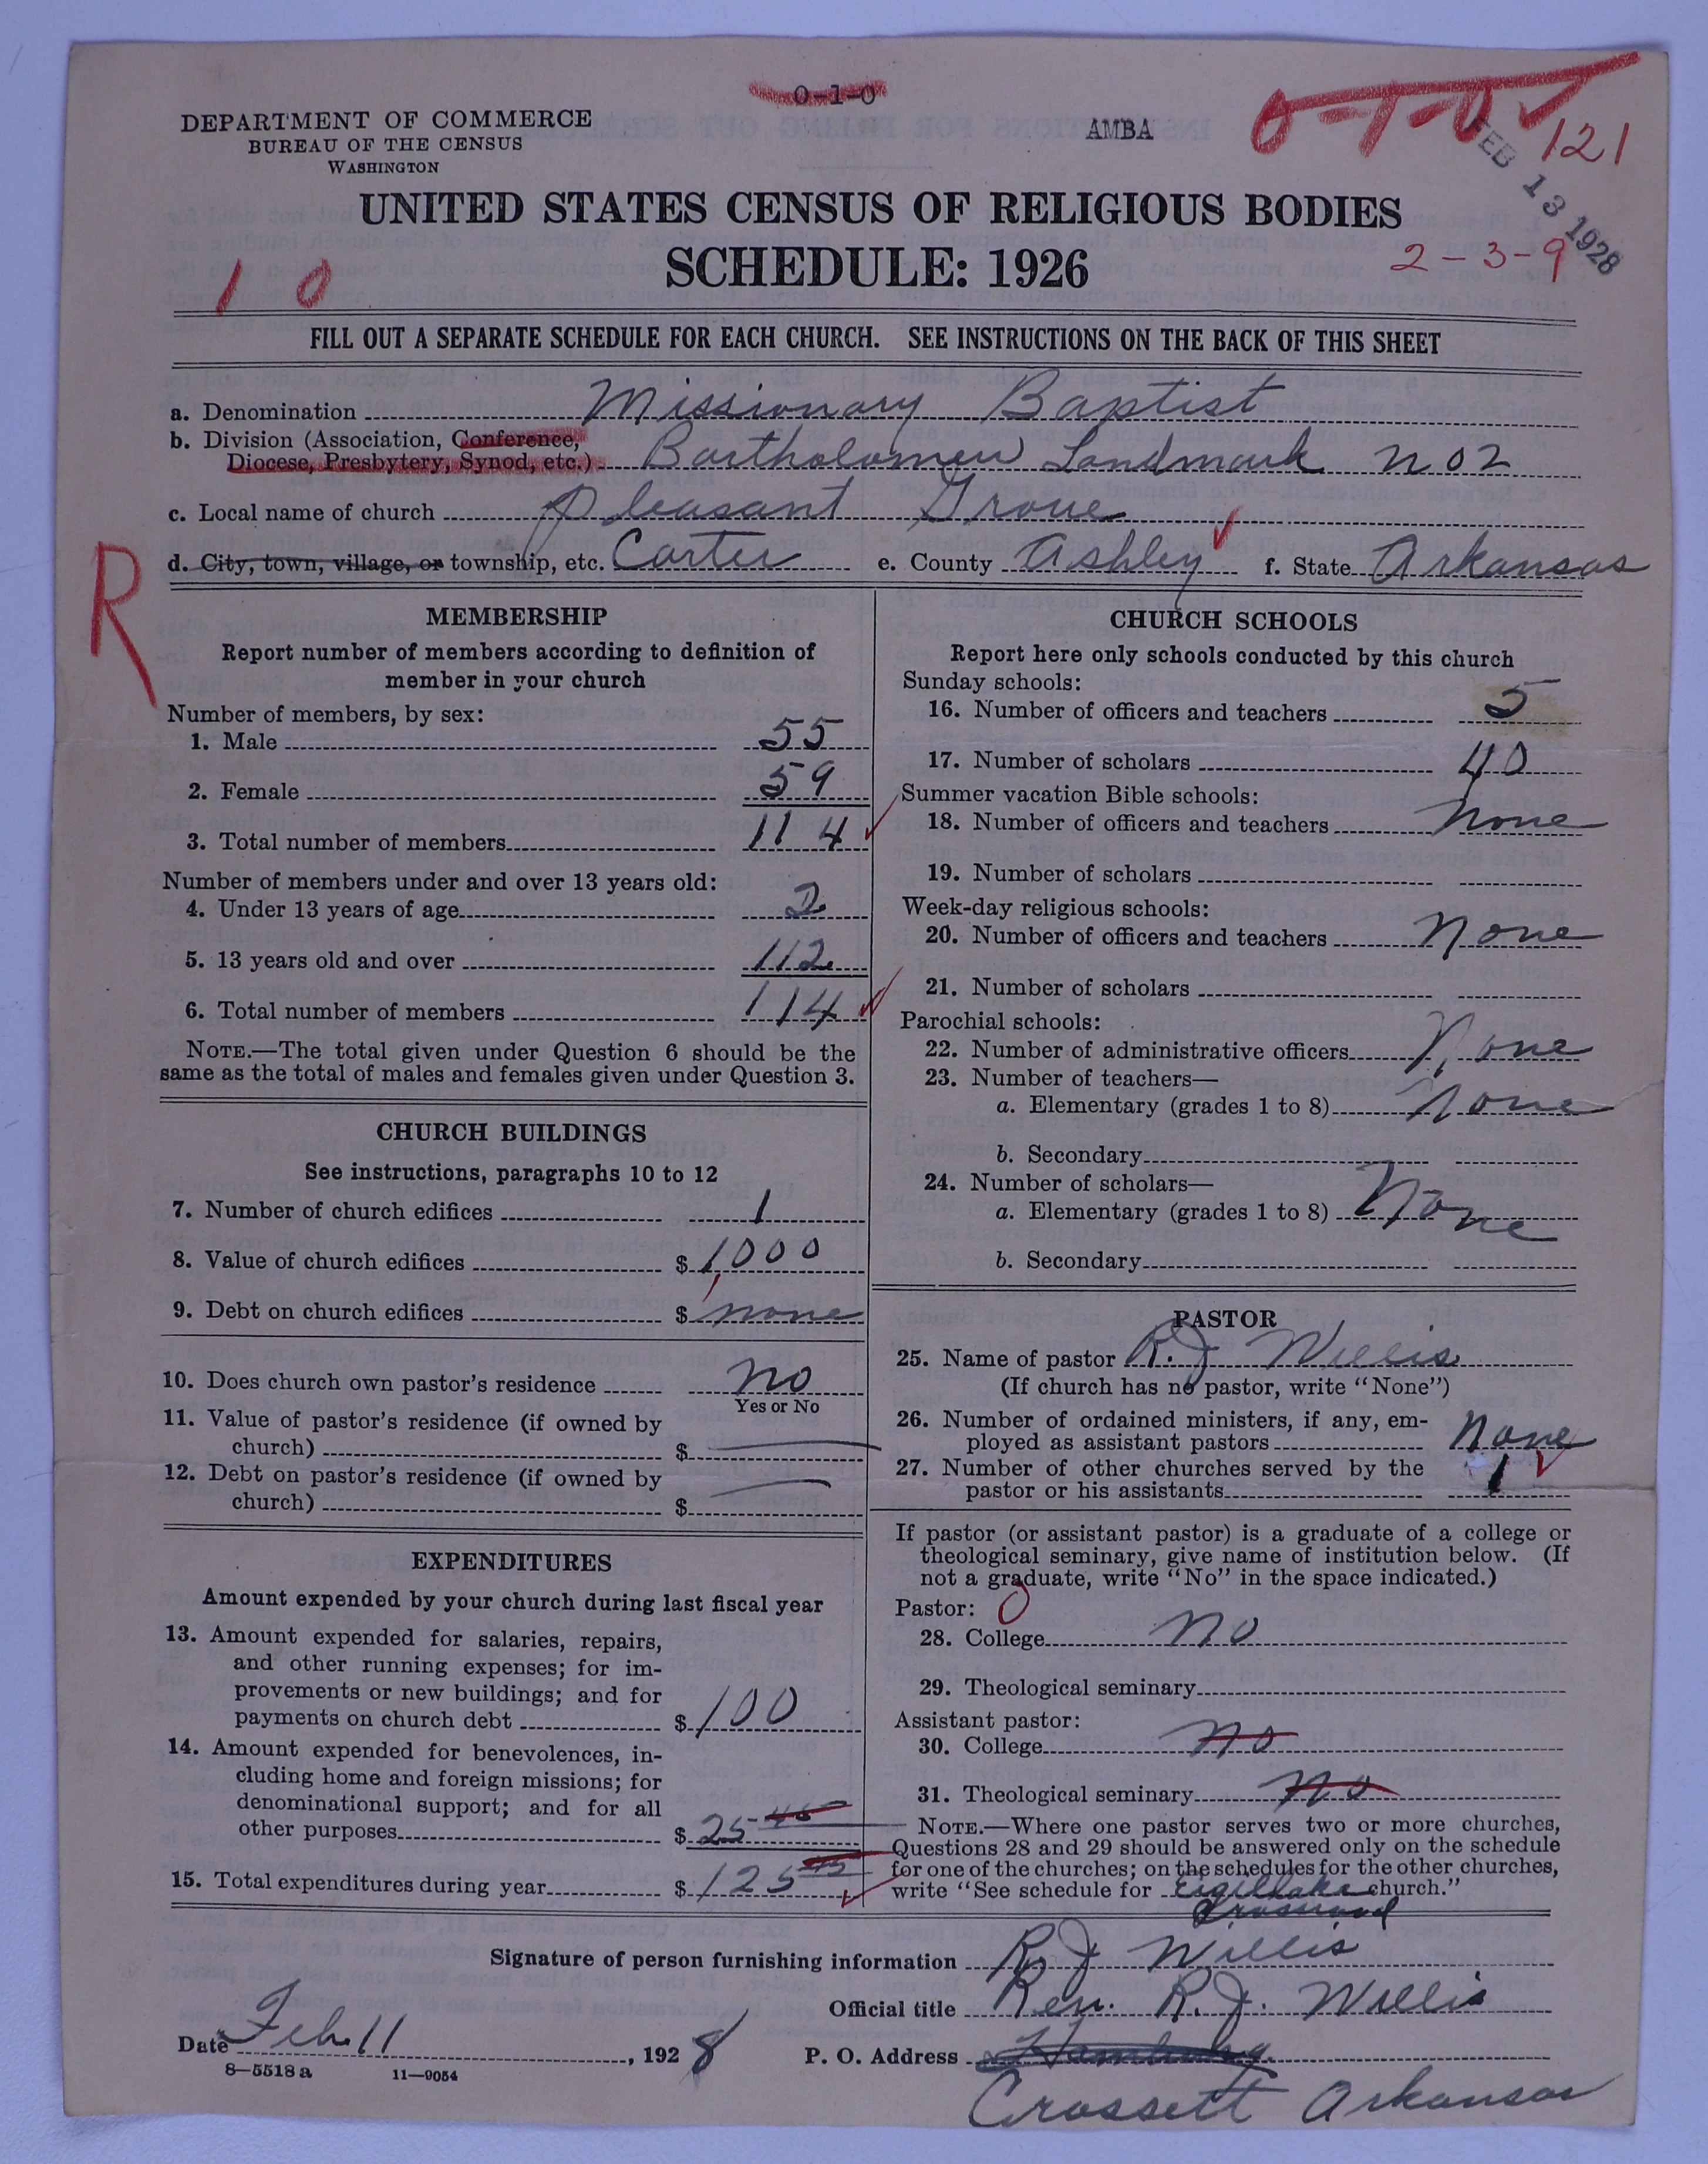 0-1-0
DEPARTMENT OF COMMERCE
BUREAU OF THE CENSUS
WASHINGTON
AMBA
0-1-0
121
FEB 13 1928
UNITED STATES CENSUS OF RELIGIOUS BODIES
SCHEDULE: 1926
2-3-9
1 0
FILL OUT A SEPARATE SCHEDULE FOR EACH CHURCH. SEE INSTRUCTIONS ON THE BACK OF THIS SHEET
a. Denomination Missionary Baptist
b. Division (Association, Conference,
Diocese, Presbytery, Synod, etc.) Bartholomew Landmark No 2
c. Local name of church Pleasant Grove
d. City, town, village, or township, etc. Carter e. County Ashley f. State Arkansas
R
MEMBERSHIP
Report number of members according to definition of
member in your church
Number of members, by sex:
1. Male 55
2. Female 59
3. Total number of members 114
Number of members under and over 13 years old:
4. Under 13 years of age 2
5. 13 years old and over 112
6. Total number of members 114
NOTE.—The total given under Question 6 should be the
same as the total of males and females given under Question 3.
CHURCH BUILDINGS
See instructions, paragraphs 10 to 12
7. Number of church edifices 1
8. Value of church edifices $1,000
9. Debt on church edifices $ none
10. Does church own pastor's residence no
Yes or No
11. Value of pastor's residence (if owned by
church) $
12. Debt on pastor's residence (if owned by
church) $
EXPENDITURES
Amount expended by your church during last fiscal year
13. Amount expended for salaries, repairs,
and other running expenses; for im-
provements or new buildings; and for
payments on church debt $100
14. Amount expended for benevolences, in-
cluding home and foreign missions; for
denominational support; and for all
other purposes $25
15. Total expenditures during year $125
CHURCH SCHOOLS
Report here only schools conducted by this church
Sunday schools:
16. Number of officers and teachers 5
17. Number of scholars 40
Summer vacation Bible schools:
18. Number of officers and teachers None
19. Number of scholars
Week-day religious schools:
20. Number of officers and teachers None
21. Number of scholars
Parochial schools:
22. Number of administrative officers None
23. Number of teachers—
a. Elementary (grades 1 to 8) None
b. Secondary
24. Number of scholars—
a. Elementary (grades 1 to 8) None
b. Secondary
PASTOR
25. Name of pastor R. J Willis
(If church has no pastor, write "None")
26. Number of ordained ministers, if any, em-
ployed as assistant pastors None
27. Number of other churches served by the
pastor or his assistants 1
If pastor (or assistant pastor) is a graduate of a college or
theological seminary, give name of institution below. (If
not a graduate, write "No" in the space indicated.)
Pastor: 0
28. College no
29. Theological seminary
Assistant pastor:
30. College no
31. Theological seminary no
NOTE.—Where one pastor serves two or more churches,
Questions 28 and 29 should be answered only on the schedule
for one of the churches; on the schedules for the other churches,
write "See schedule for church."
Signature of person furnishing information R. J Willis
Official title Rev. R. J. Willis
Date Feb 11, 1928
P. O. Address Hamburg
Crossett Arkansas
8—5518 a 11—9054